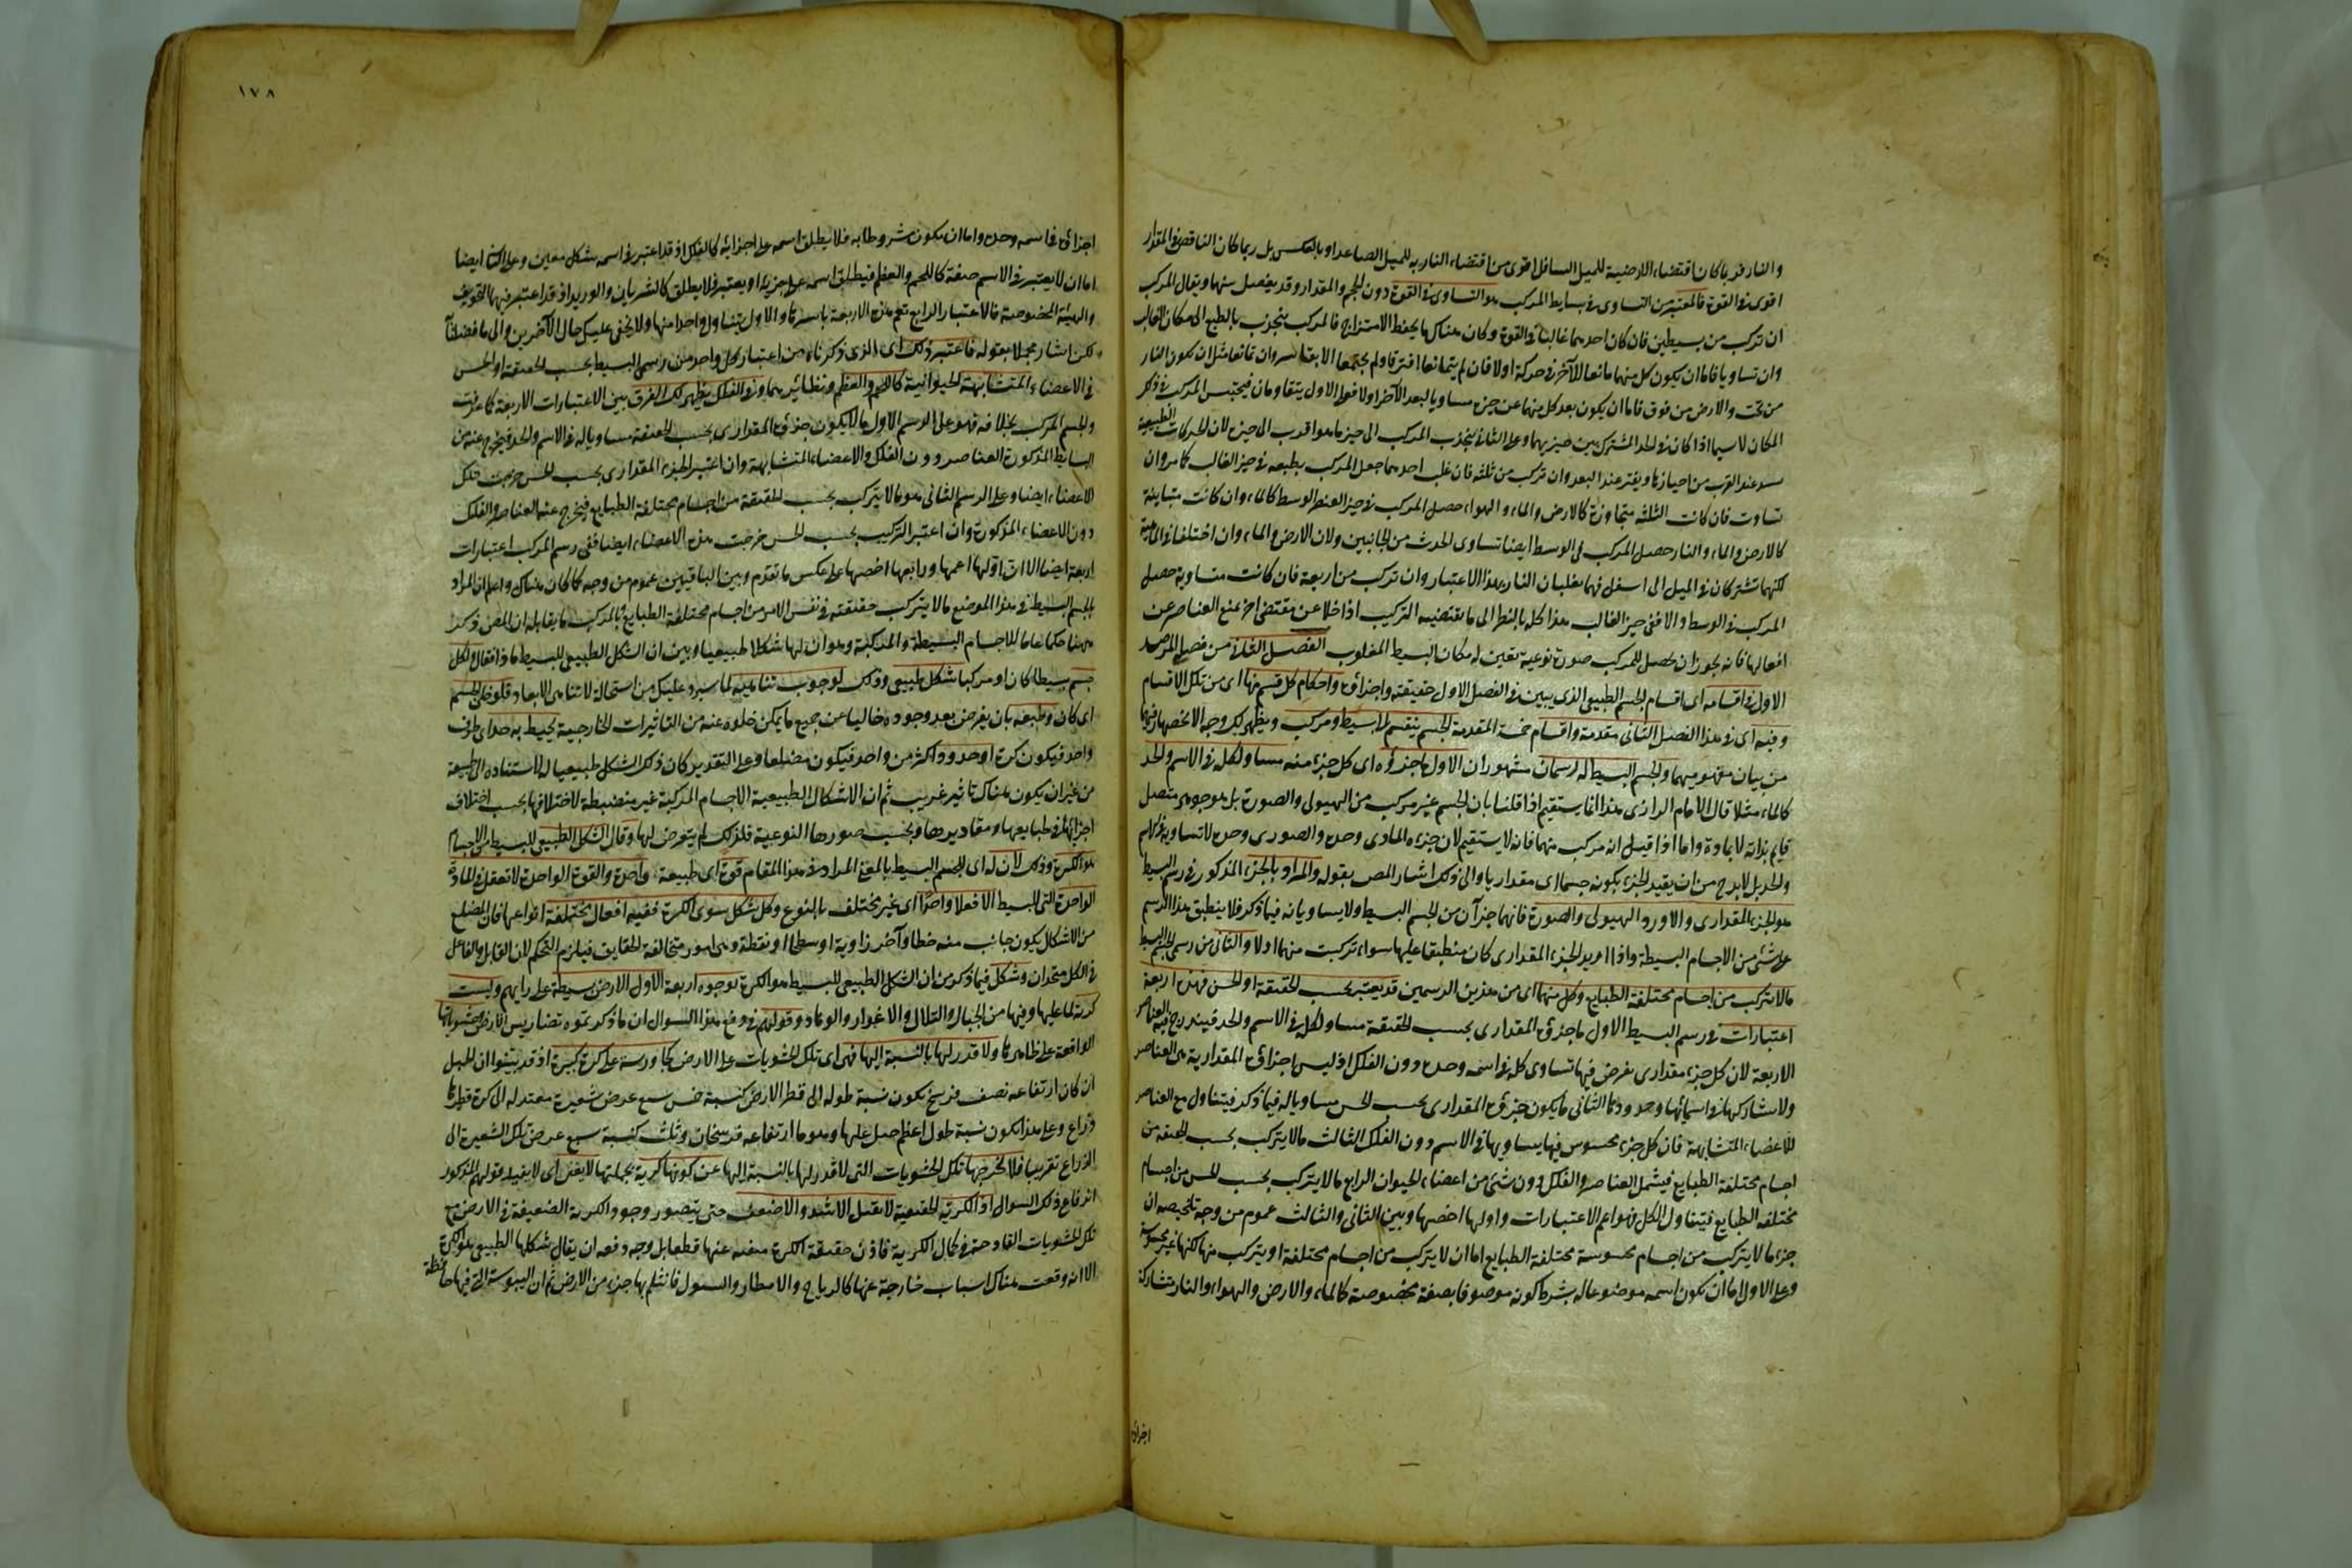 والنار فربما كان اقتضاء الارضية للميل السافل اقوى من اقتضاء النارية للميل الصاعد او بالعكس بل ربما كان الناقص فى المقدار
اقوى فى القوة فالمعتبر من التساوى فى بسايط المركب هو التساوى فى القوة دون الحجم والمقدار وقد يفصل منها ويقال المركب
ان تركب من بسيطين فان كان احدهما غالبا فى القوة وكان هناك ما يحفظ الامتزاج فالمركب ينجذب بالطبع الى مكان الغالب
وان تساويا فاما ان يكون كل منهما ممانعا للآخر فى حركته او لا فان لم يتمانعا افترقا ولم يجتمعا الا بقاسر وان تمانعا مثل ان تكون النار
من تحت والارض من فوق فاما ان يكون بعد كل منهما عن حيزه مساويا لبعد الآخر او لا فعلى الاول يتقاومان فيحتبس المركب فى ذلك
المكان لاسيما اذا كان فى الحد المشترك بين حيزيهما وعلى الثانى ينجذب المركب الى حيز ما هو اقرب الى حيزه لان الحركات الطبيعية
تشتد عند القرب من احيازها وتفتر عند البعد وان تركب من ثلثة فان غلب احدها حصل المركب بطبعه فى حيز الغالب كما مر وان
تساوت فان كانت الثلثة متجاورة كالارض والماء والهواء حصل المركب فى حيز العنصر الوسط كالماء وان كانت متباينة
كالارض والماء والنار حصل المركب فى الوسط ايضا لتساوى الجذب من الجانبين ولان الارض والماء وان اختلفا فى الماهية
لكنهما تشتركان فى الميل الى اسفل فهما يغلبان النار بهذا الاعتبار وان تركب من اربعة فان كانت متساوية حصل
المركب فى الوسط والا ففى حيز الغالب هذا كله بالنظر الى ما يقتضيه التركيب اذا خلا عن مقتضى آخر يمنع العناصر عن
افعالها فانه يجوز ان يحصل للمركب صورة نوعية تعين له مكان البسيط المغلوب الفصل الثانى من فصول المرصد
الاول فى اقسامه اى اقسام الجسم الطبيعى الذى يبين فى الفصل الاول حقيقته واجزاؤه واحكام كل قسم منها اى من تلك الاقسام
وفيه اى فى هذا الفصل الثانى مقدمة واقسام خمسة المقدمة الجسم ينقسم الى بسيط ومركب ويظهر لك وجه الانحصار فيهما
من بيان مفهوميهما والجسم البسيط له رسمان مشهوران الاول ما جزؤه اى كل جزء منه مساو لكله فى الاسم والحد
كالماء مثلا قال الامام الرازى هذا انما يستقيم اذا قلنا بان الجسم غير مركب من الهيولى والصورة بل هو جوهر متصل
قايم بذاته لا بمادة واما اذا قيل انه مركب منهما فانه لا يستقيم لان جزءه المادى وحده والصورى وحده لا يساويه فى الاسم
والحد بل لا بد ح من ان يقيد الجزء بكونه جسما اى مقداريا والى ذلك اشار المص بقوله والمراد بالجزء المذكور فى رسم البسيط
هو الجزء المقدارى والا ورد الهيولى والصورة فانهما جزآن من الجسم البسيط ولا يساويانه فيما ذكر فلا ينطبق هذا الرسم
على شئ من الاجسام البسيطة واذا اريد الجزء المقدارى كان منطبقا عليها سواء تركبت منهما او لا والثانى من رسمى الجسم البسيط
ما لا يتركب من اجسام مختلفة الطبايع وكل منهما اى من هذين الرسمين قد يعتبر بحسب الحقيقة او الحس فهذه اربعة
اعتبارات فى رسم البسيط الاول ما جزؤه المقدارى بحسب الحقيقة مساو لكله فى الاسم والحد فيندرج فيه العناصر
الاربعة لان كل جزء مقدارى يفرض فيها تساوى كله فى اسمه وحده دون الفلك اذ ليس اجزاؤه المقدارية هى العناصر
ولا تشاركها فى اسمائها وحدودها الثانى ما يكون جزؤه المقدارى بحسب الحس مساويا له فيما ذكر فيتناول مع العناصر
للاعضاء المتشابهة فان كل جزء محسوس فيها يساويها فى الاسم دون الفلك الثالث ما لا يتركب بحسب الحقيقة من
اجسام مختلفة الطبايع فيشمل العناصر والفلك دون شئ من اعضاء الحيوان الرابع ما لا يتركب بحسب الحس من اجسام
مختلفة الطبايع فيتناول الكل فهو اعم الاعتبارات واولها اخصها وبين الثانى والثالث عموم من وجه تلخيصه ان
جزء ما لا يتركب من اجسام محسوسة مختلفة الطبايع اما ان لا يتركب من اجسام مختلفة او يتركب منها لكنها غير محسوسة
وعلى الاول اما ان يكون اسمه موضوعا له بشرط كونه موصوفا بصفة مخصوصة كالماء والارض والهواء والنار تشاركه
اجزاؤه
١٧٨
اجزاؤه فى اسمه وحده واما ان يكون مشروطا به فلا يطلق اسمه على اجزائه كالفلك اذ قد اعتبر فى اسمه شكل معين وعلى الثانى ايضا
اما ان لا يعتبر فى الاسم صفة كاللحم والعظم فيطلق اسمه على جزئه او يعتبر فلا يطلق كالشريان والوريد اذ قد اعتبر فيهما التجويف
والهيئة المخصوصة فالاعتبار الرابع يعم هذه الاربعة باسرها والاول يتناول واحدا منها ولا يخفى عليك حال الآخرين والى ما فصلناه
لك اشار مجملا بقوله فاعتبر ذلك اى الذى ذكرناه من اعتبار كل واحد من رسمى البسيط بحسب الحقيقة او الحس
فى الاعضاء المتشابهة الحيوانية كاللحم والعظم ونظائرهما وفى الفلك يظهر لك الفرق بين الاعتبارات الاربعة كما عرفت
والجسم المركب بخلافه فهو على الرسم الاول ما لا يكون جزؤه المقدارى بحسب الحقيقة مساويا له فى الاسم والحد فيخرج عنه من
البسايط المذكورة العناصر دون الفلك والاعضاء المتشابهة وان اعتبر الجزء المقدارى بحسب الحس خرجت تلك
الاعضاء ايضا وعلى الرسم الثانى هو ما يتركب بحسب الحقيقة من اجسام مختلفة الطبايع فيخرج عنه العناصر والفلك
دون الاعضاء المذكورة وان اعتبر التركيب بحسب الحس خرجت هذه الاعضاء ايضا ففى رسم المركب اعتبارات
اربعة ايضا الا ان اولها اعمها ورابعها اخصها على عكس ما تقدم وبين الباقيين عموم من وجه كما كان هناك واعلم ان المراد
بالجسم البسيط فى هذا الموضع ما لا يتركب حقيقته فى نفس الامر من اجسام مختلفة الطبايع وبالمركب ما يقابله ان المص ذكر
ههنا حكما عاما للاجسام البسيطة والمركبة وهو ان لها شكلا طبيعيا وبين ان الشكل الطبيعى للبسيط ماذا فقال لكل
جسم بسيطا كان او مركبا شكل طبيعى وذلك لوجوب تناهيه لما سيرد عليك من استحالة لاتناهى الابعاد فلو خلى الجسم
اى كان وطبعه بان يفرض بعد وجوده خاليا عن جميع ما يمكن خلوه عنه من التاثيرات الخارجية يحيط به حد اى طرف
واحد فيكون كرة او حدود اكثر من واحد فيكون مضلعا وعلى التقدير كان ذلك الشكل طبيعيا له لاستناده الى طبيعته
من غير ان يكون هناك تاثير غريب ثم ان الاشكال الطبيعية للاجسام المركبة غير منضبطة لاختلافها بحسب اختلاف
اجزائها فى طبايعها ومقاديرها وبحسب صورها النوعية فلذلك لم يتعرض لها وقال الشكل الطبيعى للبسيط من الاجسام
هو الكرة وذلك لان له اى للجسم البسيط بالمعنى المراد فى هذا المقام قوة اى طبيعة واحدة والقوة الواحدة لا تفعل فى المادة
الواحدة التى للبسيط الا فعلا واحدا اى غير مختلف بالنوع وكل شكل سوى الكرة ففيه افعال مختلفة انواعها فان المضلع
من الاشكال يكون جانب منه خطا وآخر زاوية او سطحا او نقطة وهى امور متخالفة الحقايق فيلزم التحكم لان القابل والفاعل
فى الكل متحدان وشكل فيما ذكر من ان الشكل الطبيعى للبسيط هو الكرة بوجوه اربعة الاول الارض بسيطة على رايهم وليست
كرة لما عليها وفيها من الجبال والتلال والاغوار والوهاد وقولهم فى دفع هذا السوال ان ما ذكرتموه تضاريس الارض وخشوناتها
الواقعة على ظاهرها ولا قدر لها بالنسبة اليها فهى اى تلك الخشونات على الارض كجاورسة على كرة كبيرة اذ قد بينوا ان الجبل
ان كان ارتفاعه نصف فرسخ تكون نسبة طوله الى قطر الارض كنسبة خمس سبع عرض شعيرة معتدلة الى كرة قطرها
ذراع وعلى هذا تكون نسبة طول اعظم جبل عليها وهو ما ارتفاعه فرسخان وثلث كنسبة سبع عرض تلك الشعيرة الى
الذراع تقريبا فلا تخرجها تلك الخشونات التى لا قدر لها بالنسبة اليها عن كونها كرية بجملتها لا يغنى اى لا يفيد قولهم المذكور
اندفاع ذلك السوال اذ الكرية الحقيقية لا تقبل الاشد والاضعف حتى يتصور وجود الكرية الضعيفة فى الارض مع
تلك الخشونات القادحة فى كمال الكرية فاذن حقيقة الكرة منفية عنها قطعا بل وجه دفعه ان يقال شكلها الطبيعى هو الكرة
الا انه وقعت هناك اسباب خارجة عنها كالرياح والامطار والسيول فانثلم بها جزء من الارض ثم ان اليبوسة التى فيها حافظة